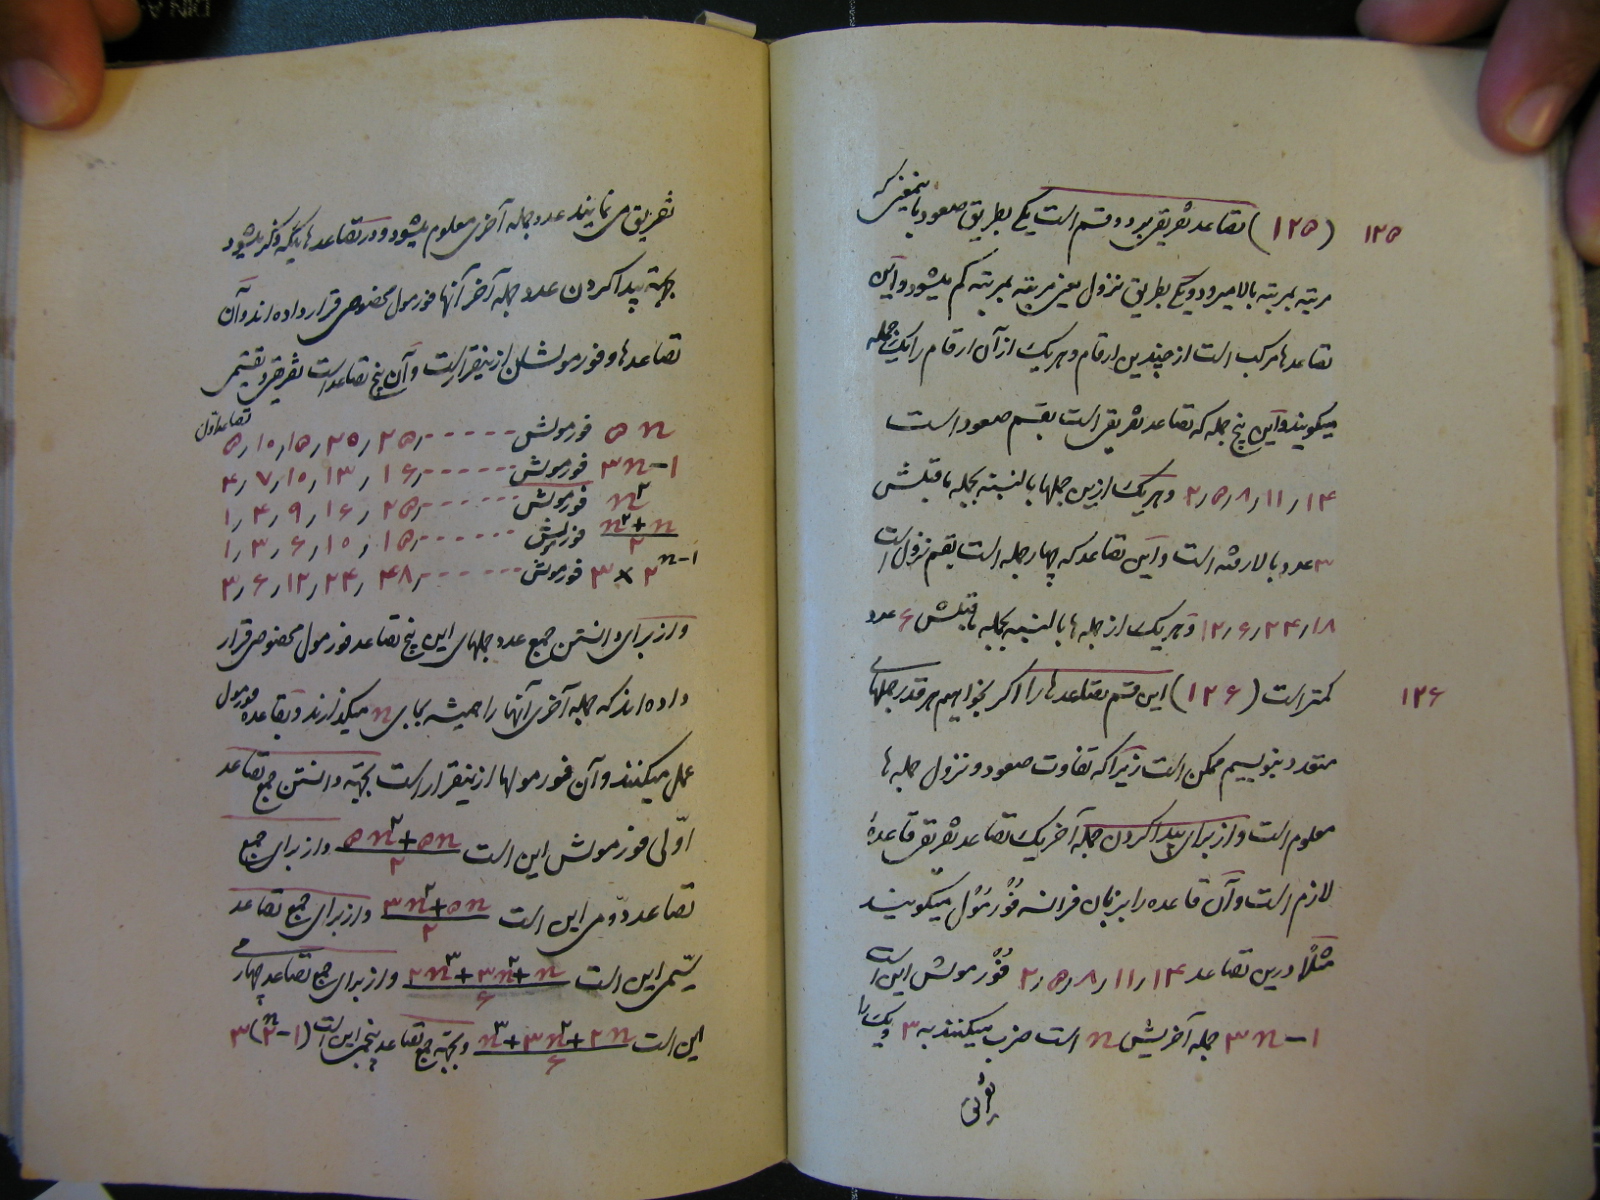 ۱۲۵ (۱۲۵) تصاعد تفریقی بر دو قسم است یکی بطریق صعود باینمعنی که
مرتبه بمرتبه بالا میرود و یکی بطریق نزول یعنی مرتبه بمرتبه کم میشود و این
تصاعدها مرکب است از چندین ارقام و هر یک از آن ارقام را یک جمله
میگویند و این پنج جمله که تصاعد تفریقی است بقسم صعود است
۲٫۵٫۸٫۱۱٫۱۴ و هر یک ازین جملها بالنسبه بجمله ماقبلش
۳ عدد بالا رفته است و این تصاعد که چهار جمله است بقسم نزول است
۱۲٫۶٫۲۴٫۱۸ و هر یک از جمله ها بالنسبه بجمله ماقبلش ۶ عدد
۱۲۶ کمتر است (۱۲۶) این قسم تصاعدها را اگر بخواهیم هر قدر جملهای
متعدد بنویسیم ممکن است زیرا که تفاوت صعود و نزول جمله ها
معلوم است و از برای پیدا کردن جمله آخر یک تصاعد تفریقی قاعدهٔ
لازم است و آن قاعده را بزبان فرانسه فُوْرمُوْل میگویند
مثلاً درین تصاعد ۲٫۵٫۸٫۱۱٫۱۴ فُوْرمولش این است
۳n−۱ جمله آخریش n است ضرب میکنند به ۳ و یک را
تفریق
تفریق می نمایند عدد جمله آخری معلوم میشود و در تصاعدهائیکه ذکر میشود
بجهة پیدا کردن عدد جمله آخر آنها فورمول مخصوصی قرار داده اند و آن
تصاعدها و فورمولشان ازینقرار است و آن پنج تصاعد است تفریقی و تقسیمی
تصاعد اول ۵٫۱۰٫۱۵٫۲۰٫۲۵٫------ فورمولش ۵n
۴٫۷٫۱۰٫۱۳٫۱۶٫------ فورمولش ۳n−۱
۱٫۴٫۹٫۱۶٫۲۵٫------ فورمولش n^۲
۱٫۳٫۶٫۱۰٫۱۵٫------ فورمولش (n^۲+n)/۲
۳٫۶٫۱۲٫۲۴٫۴۸٫------ فورمولش ۳×۲^(n−۱)
و از برای دانستن جمع عدد جملهای این پنج تصاعد فورمول مخصوصی قرار
داده اند که جمله آخری آنها را همیشه بجای n میگذارند و بقاعده فورمول
عمل میکنند و آن فورمولها ازینقرار است بجهة دانستن جمع تصاعد
اوّلی فورمولش این است (۵n^۲+۵n)/۲ و از برای جمع
تصاعد دوّمی این است (۳n^۲+۵n)/۲ و از برای جمع تصاعد
سیّمی این است (۲n^۳+۳n^۲+n)/۶ و از برای جمع تصاعد چهارمی
این است (n^۳+۳n^۲+۲n)/۶ و بجهة جمع تصاعد پنجمی این است ۳(۲^n−۱)